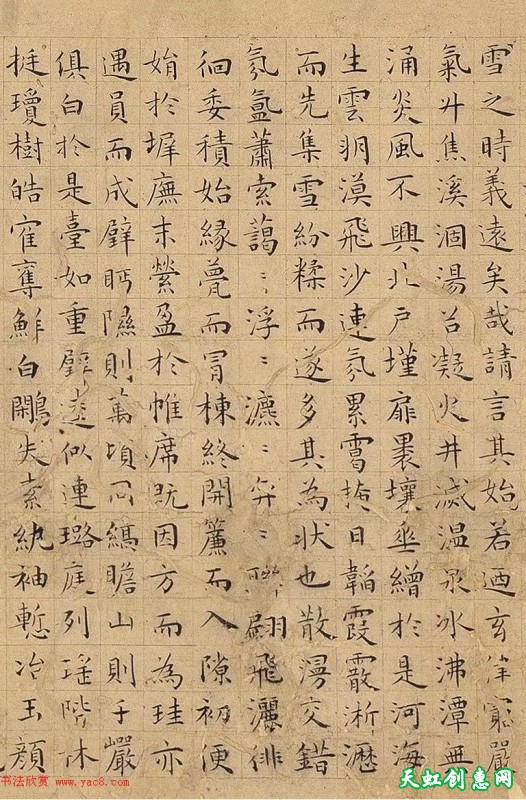 雪之時義遠矣哉請言其始若迺玄律窮嚴
氣升焦溪涸湯谷凝火井滅温泉冰沸潭無
涌炎風不興北戶墐扉裸壤垂繒於是河海
生雲朔漠飛沙連氛累靄掩日韜霞霰淅瀝
而先集雪紛糅而遂多其為狀也散漫交錯
氛氳蕭索藹〻浮〻瀌〻弈〻聯翩飛灑徘
徊委積始緣甍而冒棟終開簾而入隙初便
娟於墀廡末縈盈於帷席既因方而為珪亦
遇員而成璧眄隰則萬頃同縞瞻山則千巖
俱白於是臺如重璧逵似連璐庭列瑤階林
挺瓊樹皓隺奪鮮白鷴失素紈袖慙冶玉顏
书法欣赏 www.yac8.com
天虹创惠网